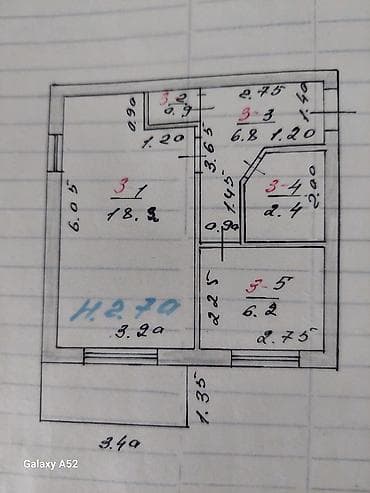 0.90
3-2
0.9
1.20
2.75
3-3
6.8
1.20
1.40
3.65
6.05
3 1
18.2
3-4
2.4
2.00
1.45
0.90
2.25
3-5
6.2
2.75
H.2.70
3.20
1.35
3.40
Galaxy A52